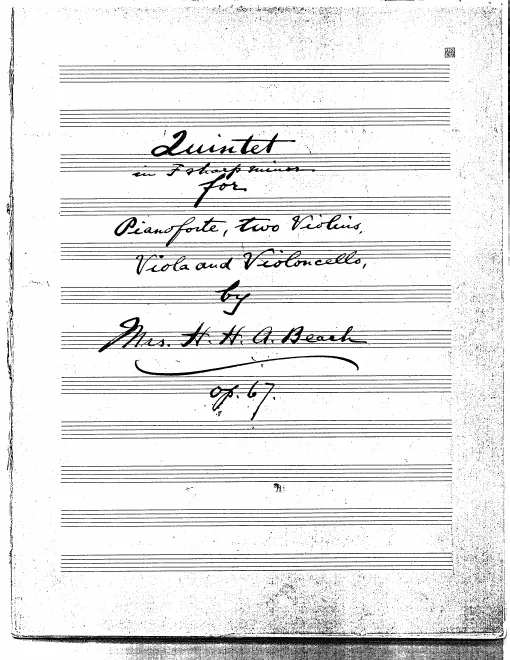 Quintet
in F sharp minor
for
Pianoforte, two Violins,
Viola and Violoncello,
by
Mrs. H. H. A. Beach
op. 67.